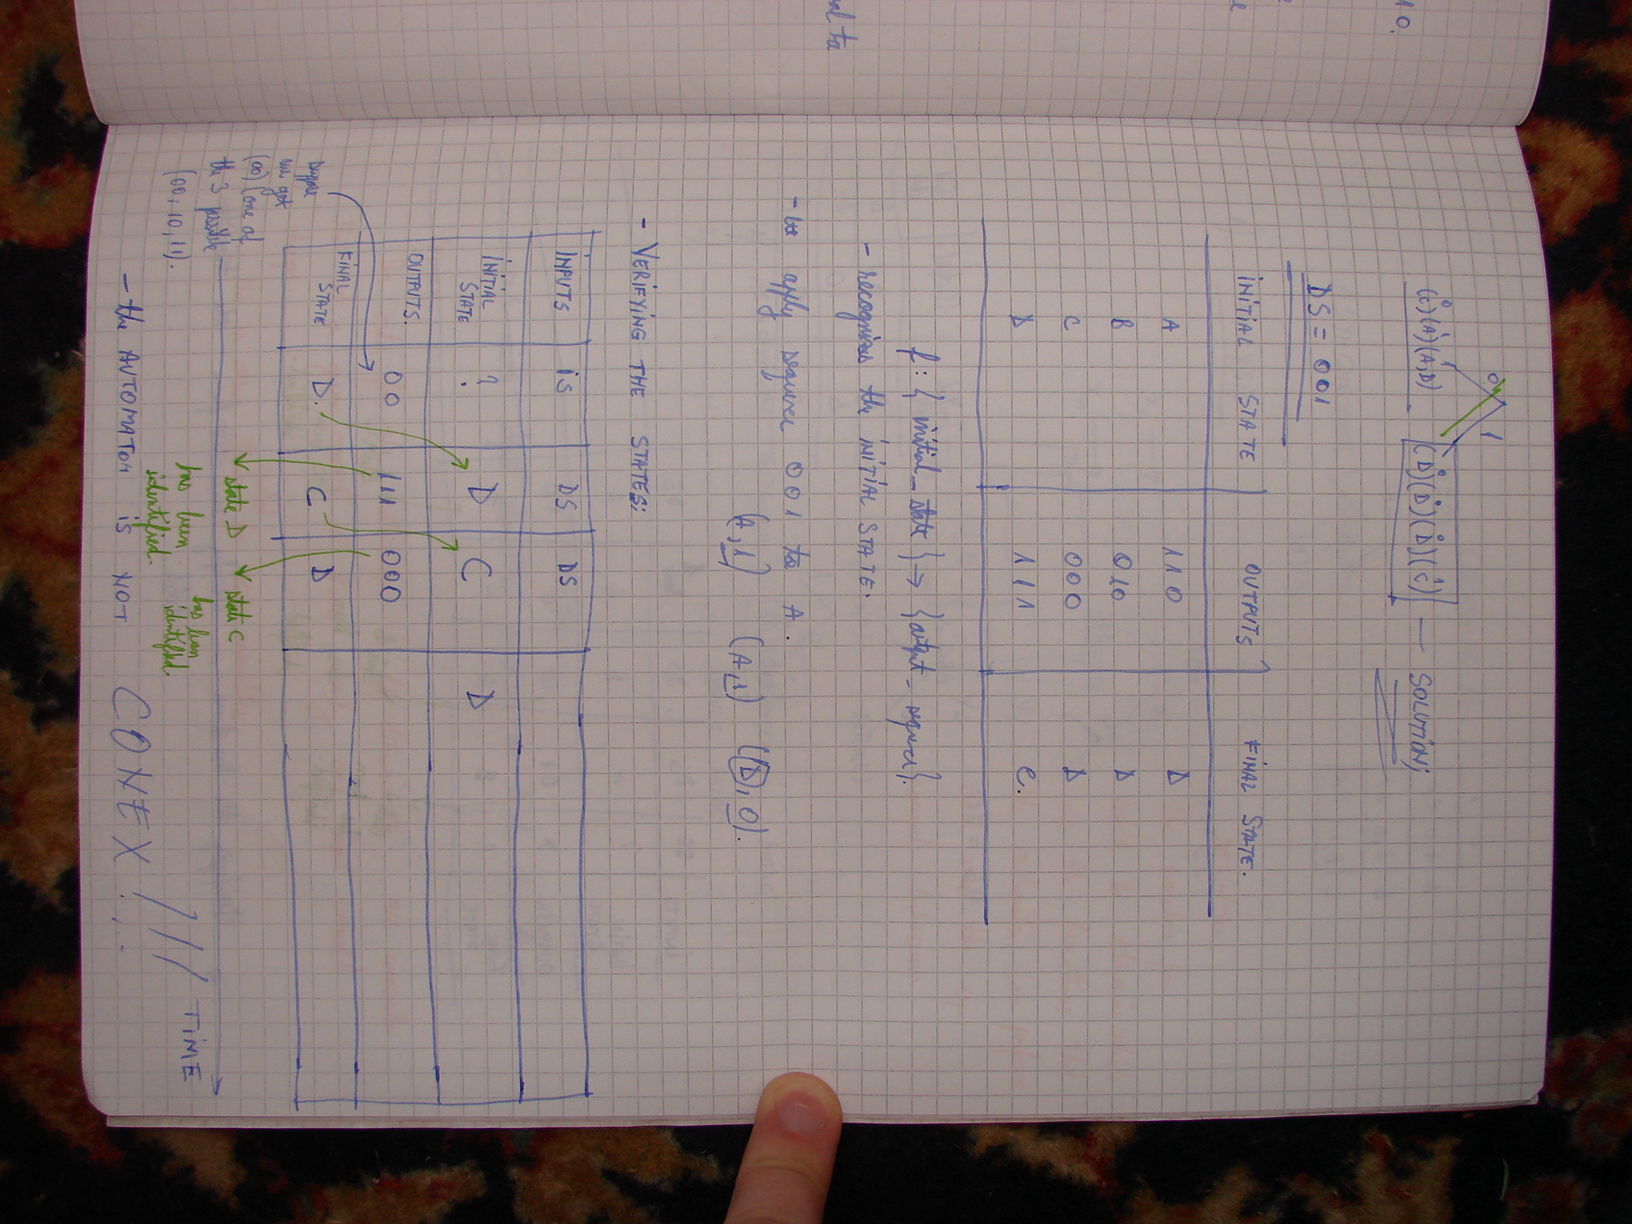 0 1
(C)(A)(A,D) (D)(D)(D)(C) — SOLUTION;
DS = 001
INITIAL STATE OUTPUTS FINAL STATE.
A 110 D
B 010 D
C 000 D
D 111 C.
f: { initial_state } → { output_sequence }.
- recognises the INITIAL STATE.
- we apply sequence 001 to A.
(A,1) (A,1) (D,0).
- VERIFYING THE STATES:
INPUTS iS DS DS
INITIAL STATE ? D C D
OUTPUTS. 00 111 000
FINAL STATE D. C D
suppose
we got
(00) (one of
the 3 possible
(00, 10, 11).
state D has been identified.
state C has been identified.
TIME
- the AUTOMATON IS NOT CONEX!